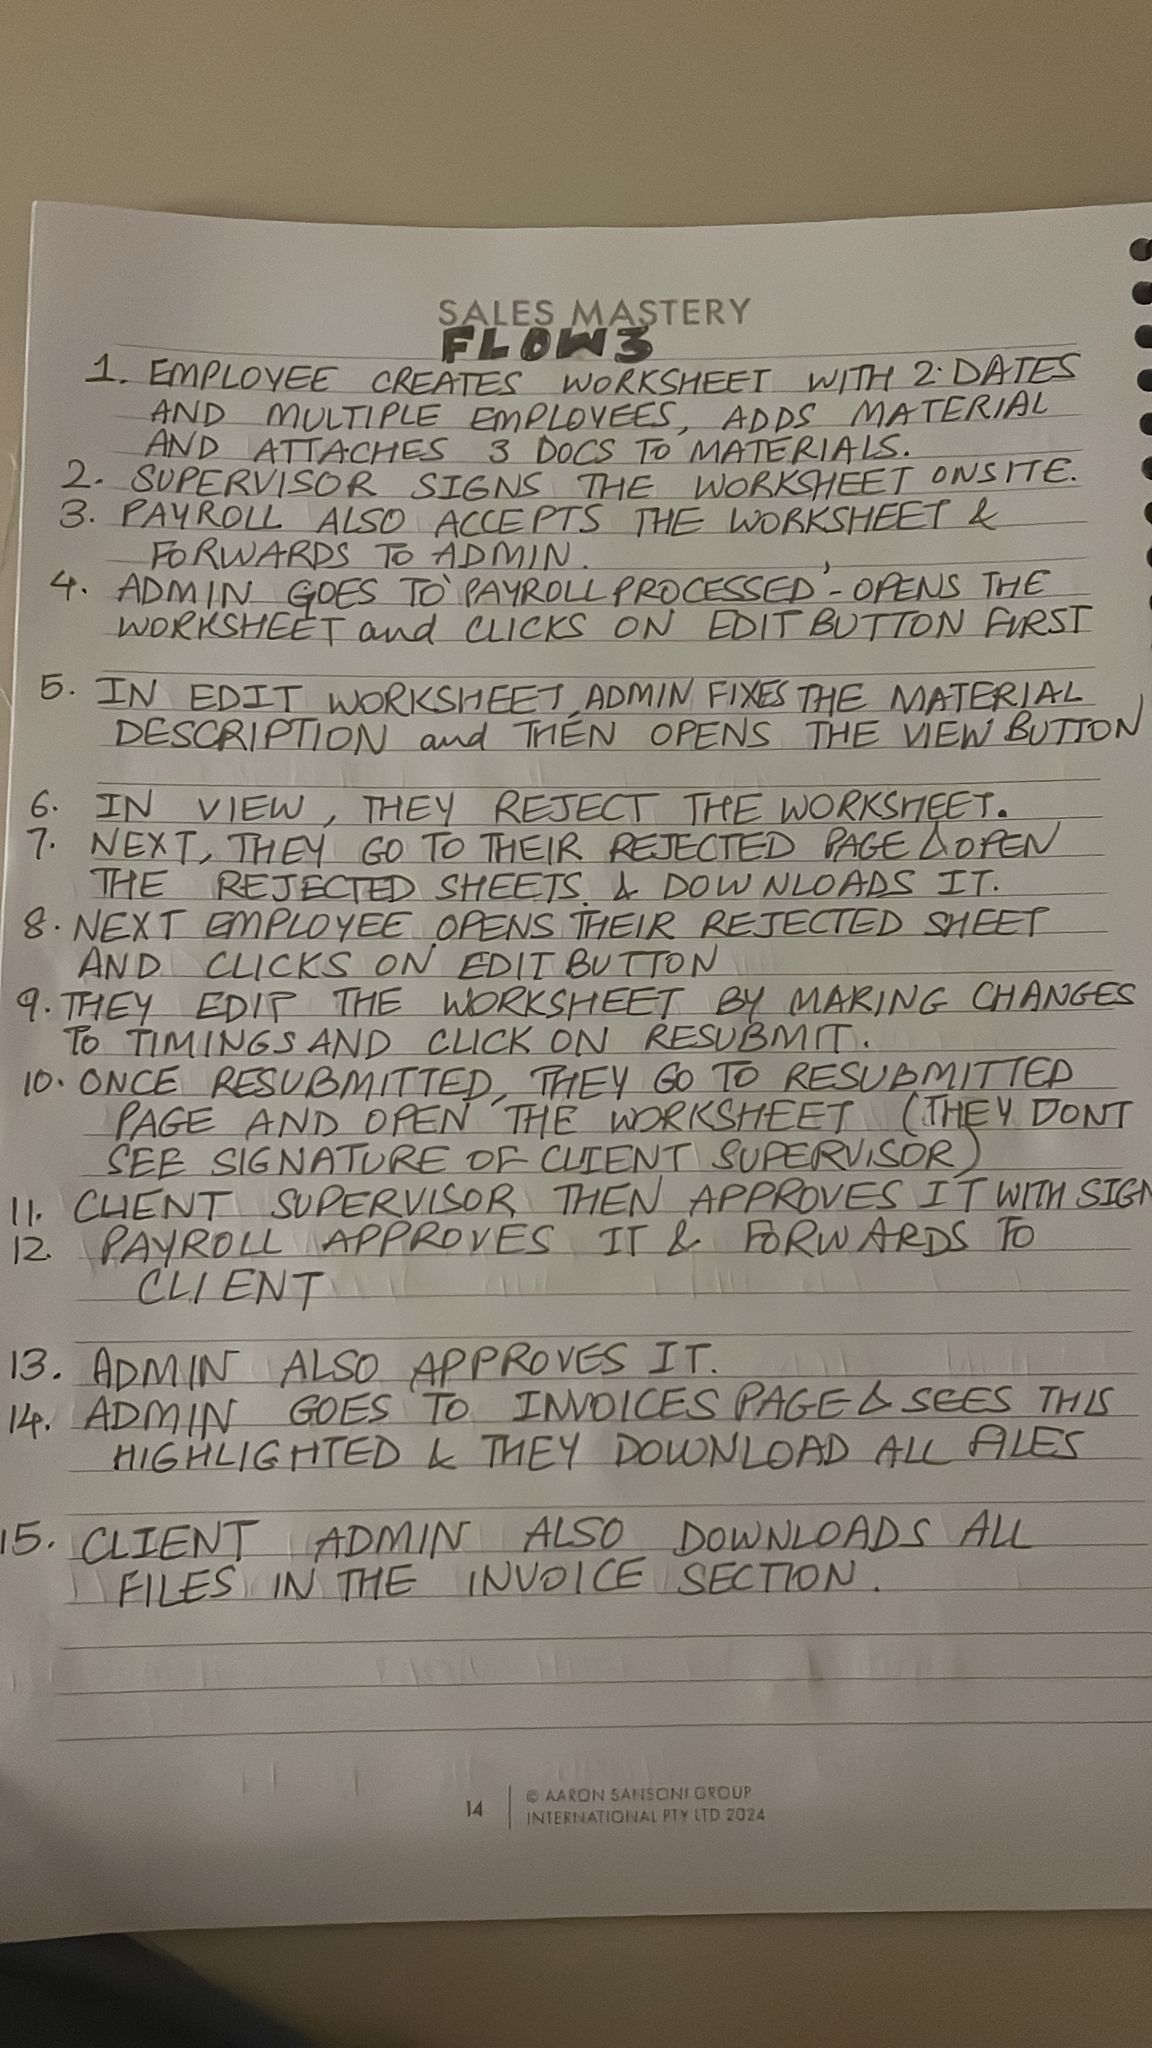 SALES MASTERY
FLOW 3
1. EMPLOYEE CREATES WORKSHEET WITH 2 DATES
AND MULTIPLE EMPLOYEES, ADDS MATERIAL
AND ATTACHES 3 DOCS TO MATERIALS.
2. SUPERVISOR SIGNS THE WORKSHEET ONSITE.
3. PAYROLL ALSO ACCEPTS THE WORKSHEET &
FORWARDS TO ADMIN.
4. ADMIN GOES TO 'PAYROLL PROCESSED' - OPENS THE
WORKSHEET and CLICKS ON EDIT BUTTON FIRST
5. IN EDIT WORKSHEET, ADMIN FIXES THE MATERIAL
DESCRIPTION and THEN OPENS THE VIEW BUTTON
6. IN VIEW, THEY REJECT THE WORKSHEET.
7. NEXT, THEY GO TO THEIR REJECTED PAGE & OPEN
THE REJECTED SHEETS. & DOWNLOADS IT.
8. NEXT EMPLOYEE OPENS THEIR REJECTED SHEET
AND CLICKS ON EDIT BUTTON
9. THEY EDIT THE WORKSHEET BY MAKING CHANGES
TO TIMINGS AND CLICK ON RESUBMIT.
10. ONCE RESUBMITTED, THEY GO TO RESUBMITTED
PAGE AND OPEN THE WORKSHEET (THEY DONT
SEE SIGNATURE OF CLIENT SUPERVISOR)
11. CLIENT SUPERVISOR THEN APPROVES IT WITH SIGN
12. PAYROLL APPROVES IT & FORWARDS TO
CLIENT
13. ADMIN ALSO APPROVES IT.
14. ADMIN GOES TO INVOICES PAGE & SEES THIS
HIGHLIGHTED & THEY DOWNLOAD ALL FILES
15. CLIENT ADMIN ALSO DOWNLOADS ALL
FILES IN THE INVOICE SECTION.
14 | © AARON SANSONI GROUP
INTERNATIONAL PTY LTD 2024